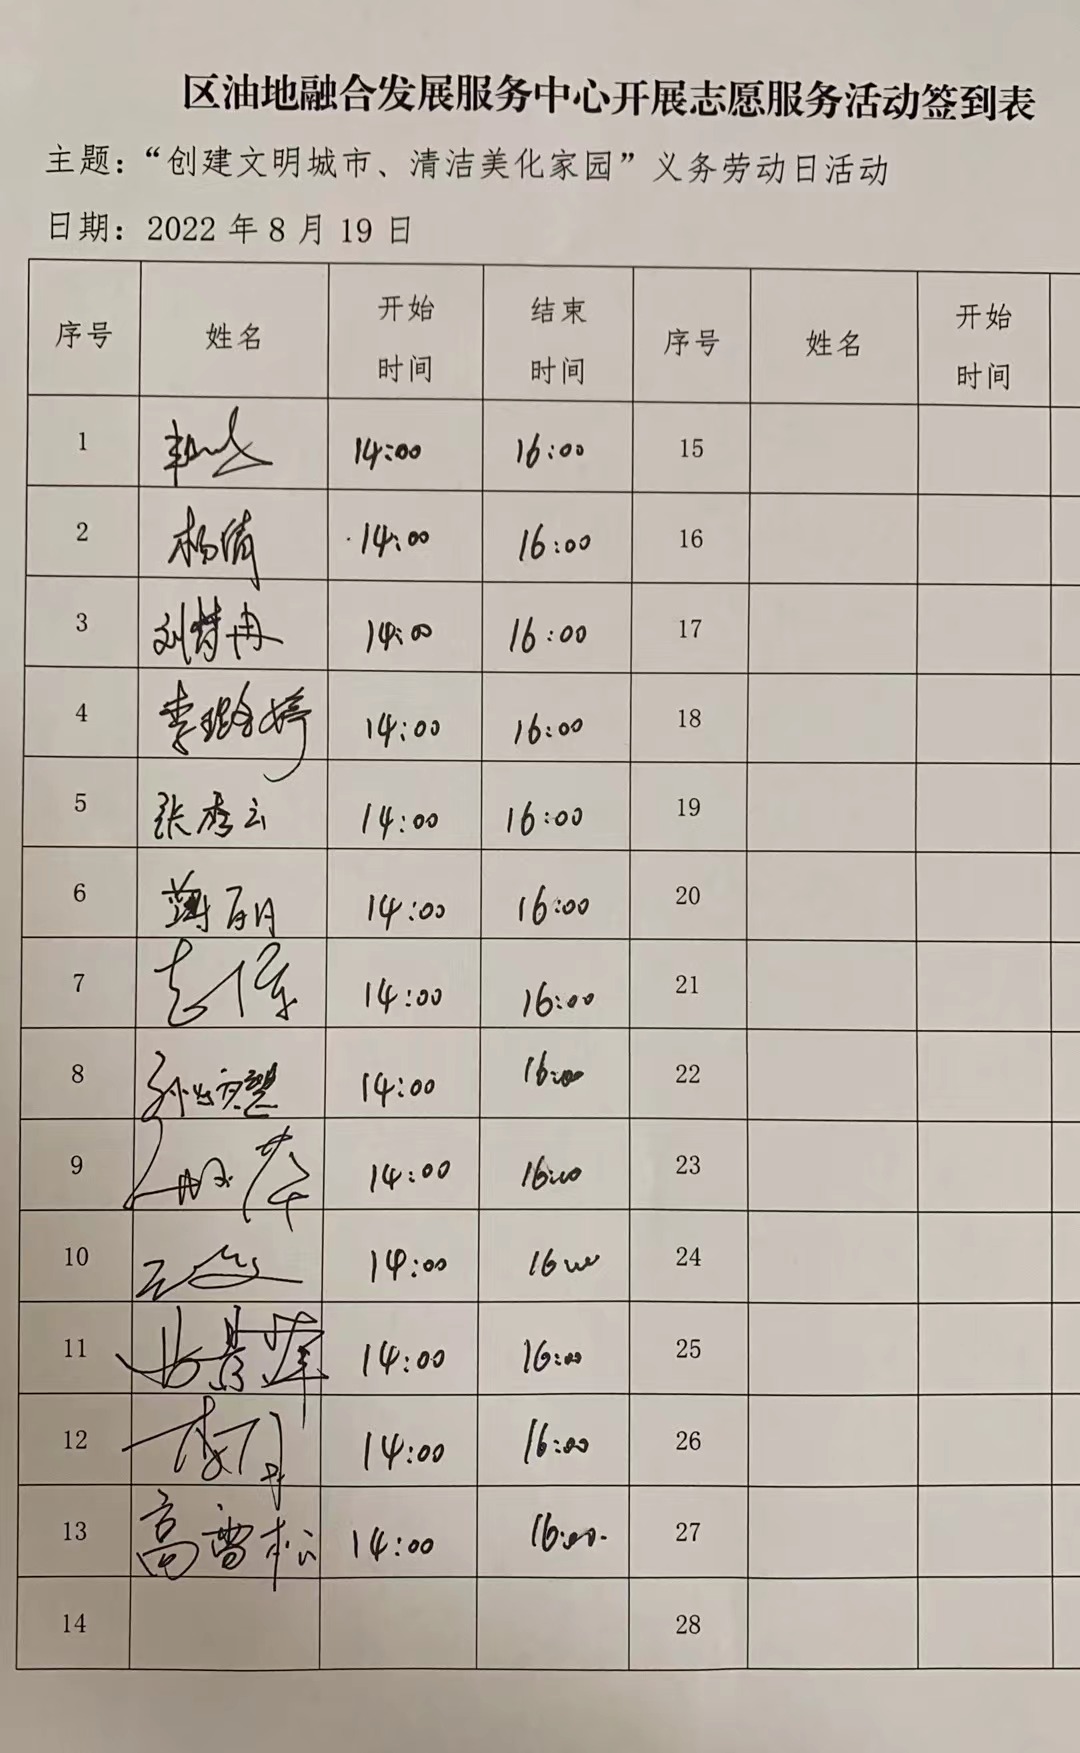 区油地融合发展服务中心开展志愿服务活动签到表
主题：“创建文明城市、清洁美化家园”义务劳动日活动
日期：2022 年 8 月 19 日
序号 姓名 开始时间 结束时间 序号 姓名 开始时间
1 14:00 16:00 15
2 杨倩 14:00 16:00 16
3 刘梦冉 14:00 16:00 17
4 李璐婷 14:00 16:00 18
5 张秀云 14:00 16:00 19
6 14:00 16:00 20
7 14:00 16:00 21
8 14:00 16:00 22
9 14:00 16:00 23
10 14:00 16:00 24
11 14:00 16:00 25
12 14:00 16:00 26
13 高雪松 14:00 16:00 27
14 28